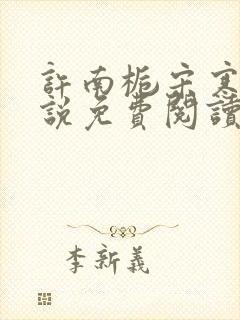 許南梔宋寒
說免費閱讀
李新義